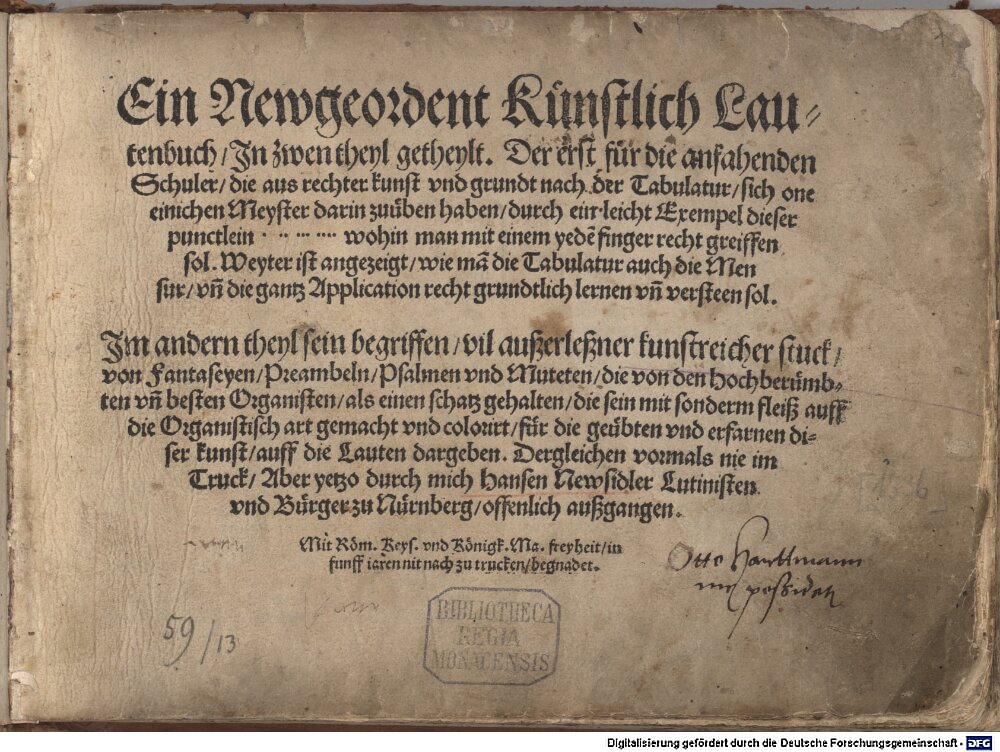 Ein Newgeordent Künstlich Lau⸗
tenbuch/ In zwen theyl getheylt. Der erst für die anfahenden
Schuler/ die aus rechter kunst vnd grundt nach der Tabulatur/ sich one
einichen Meyster darin zuüben haben/ durch ein leicht Exempel dieser
punctlein · ·· ··· ···· wohin man mit einem yedẽ finger recht greiffen
sol. Weyter ist angezeigt/ wie mã die Tabulatur auch die Men
sur/ vñ die gantz Application recht grundtlich lernen vñ versteen sol.
Im andern theyl sein begriffen/ vil außerleßner kunstreicher stuck/
von Fantaseyen/ Preambeln/ Psalmen vnd Muteten/ die von den Hochberümb⸗
ten vñ besten Organisten/ als einen schatz gehalten/ die sein mit sonderm fleiß auff
die Organistisch art gemacht vnd colorirt/ für die geübten vnd erfarnen di⸗
ser kunst/ auff die Lauten dargeben. Dergleichen vormals nie im
Truck/ Aber yetzo durch mich Hansen Newsidler Lutinisten
vnd Bürger zu Nürnberg/ offenlich außgangen.
Mit Röm. Keys. vnd Königk. Ma. freyheit/ in
funff iaren nit nach zu trucken/ begnadet.
Otto Harttmann
me possidet
59/13
BIBLIOTHECA
REGIA
MONACENSIS
Digitalisierung gefördert durch die Deutsche Forschungsgemeinschaft - DFG